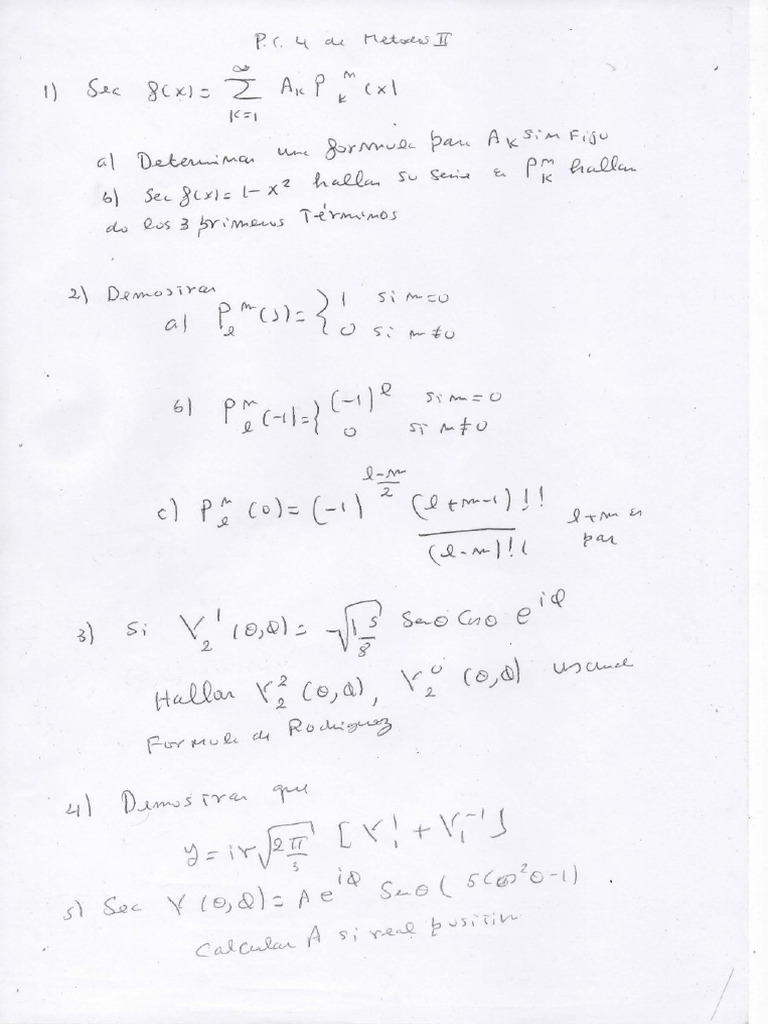 P.C. 4 de Metodos II
1) Sea f(x) = ∑_{K=1}^{∞} A_K P_K^m (x)
a) Determinar una formula para A_K si m Fijo
b) Sea f(x) = 1-x² hallar su serie en P_K^m hallan
do los 3 primeros Términos
2) Demostrar
a) P_l^m (1) = { 1 si m=0
0 si m≠0
b) P_l^m (-1) = { (-1)^l si m=0
0 si m≠0
c) P_l^m (0) = (-1)^{(l-m)/2} (l+m-1)!! / (l-m)!! l+m es
par
3) Si Y_2^1 (θ,φ) = -√(15/8) Senθ Cosθ e^{iφ}
Hallar Y_2^2 (θ,φ), Y_2^0 (θ,φ) usando
Formula de Rodriguez
4) Demostrar que
y = ir √(2π/3) [Y_1^1 + Y_1^{-1}]
5) Sea Y (θ,φ) = A e^{iφ} Senθ (5Cos²θ-1).
Calcular A si real positivo